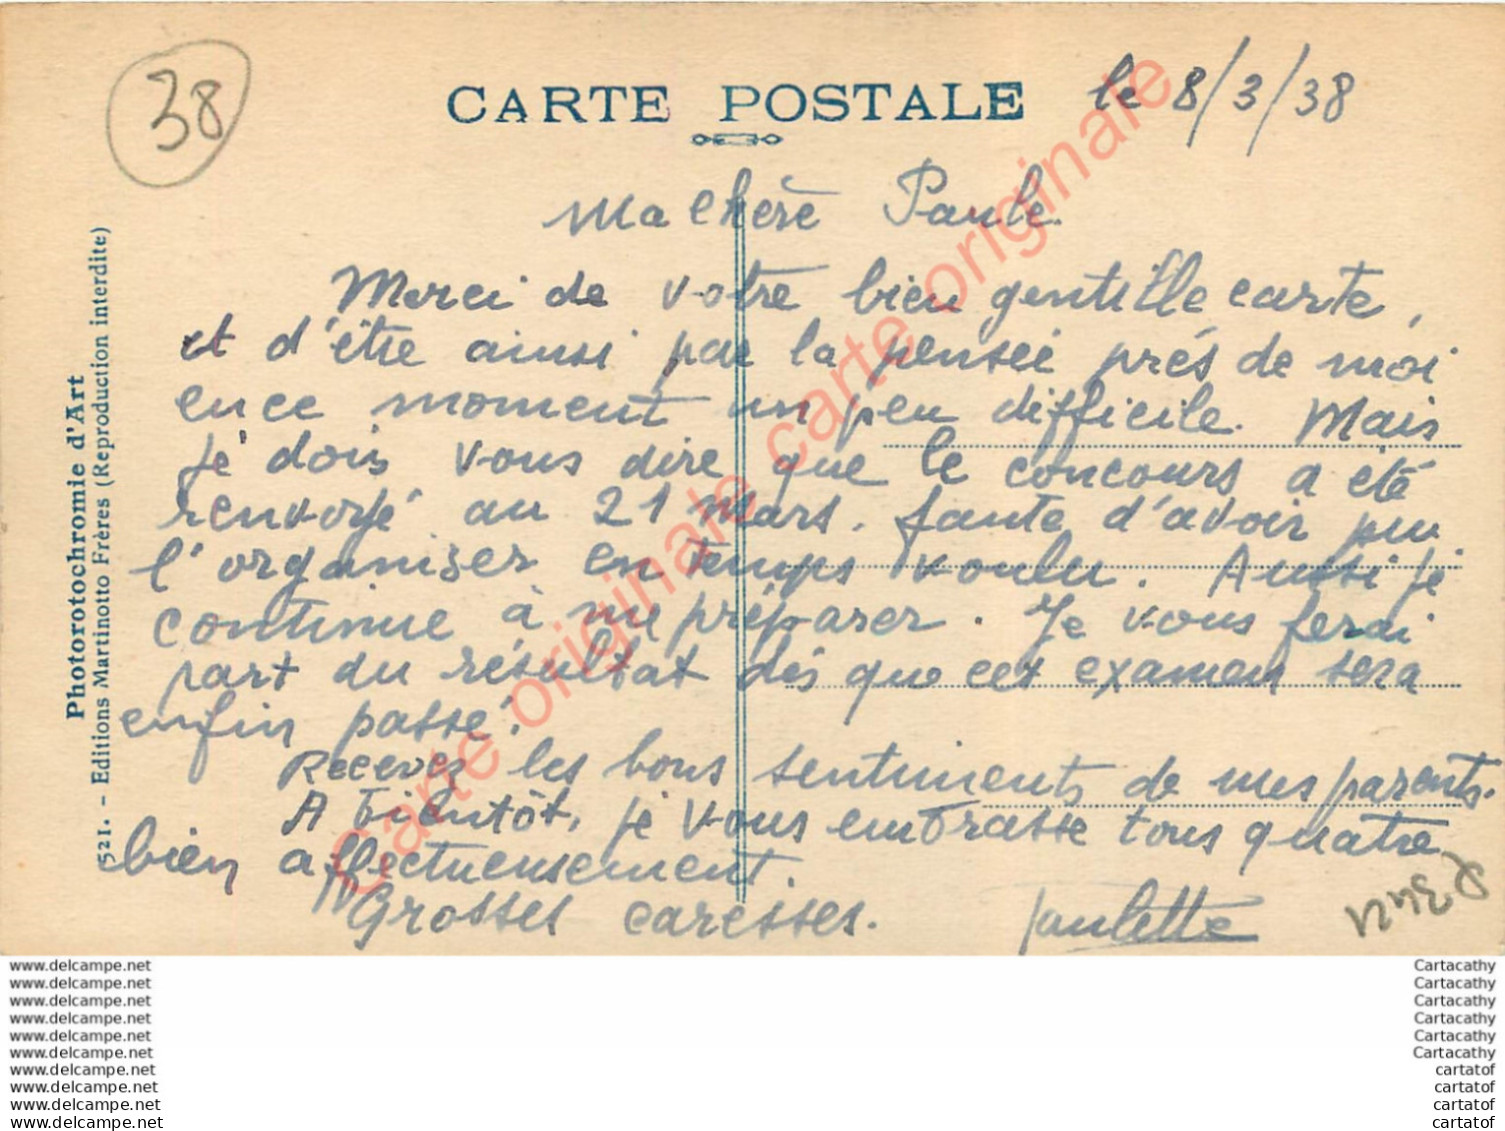 38
CARTE POSTALE
le 8/3/38
Ma chère Paule.
Merci de votre bien gentille carte,
et d'être ainsi par la pensée près de moi
en ce moment un peu difficile. Mais
je dois vous dire que le concours a été
renvoyé au 21 mars. faute d'avoir pu
l'organiser en temps voulu. Aussi je
continue à me préparer. Je vous ferai
part du résultat dès que cet examen sera
enfin passé.
Recevez les bons sentiments de mes parents.
A bientôt, je vous embrasse tous quatre
bien affectueusement.
Grosses caresses. Paulette
Photorotochromie d'Art
521. - Editions Martinotto Frères (Reproduction interdite)
Carte originale carte originale
Carte originale
www.delcampe.net
www.delcampe.net
www.delcampe.net
www.delcampe.net
www.delcampe.net
www.delcampe.net
www.delcampe.net
www.delcampe.net
www.delcampe.net
www.delcampe.net
Cartacathy
Cartacathy
Cartacathy
Cartacathy
Cartacathy
Cartacathy
cartatof
cartatof
cartatof
cartatof